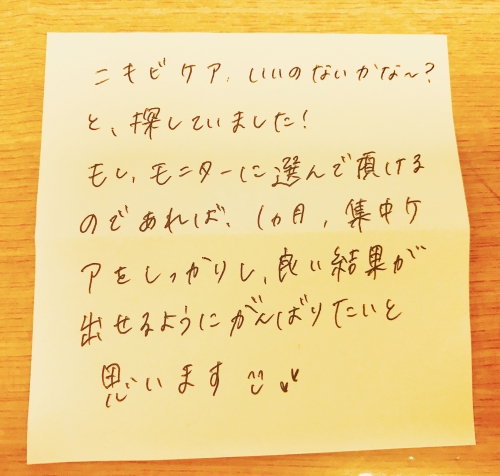 ニキビケア、いいのないかな〜?
と、探していました!
もし、モニターに選んで頂ける
のであれば、1ヵ月、集中ケ
アをしっかりし、良い結果が
出せるようにがんばりたいと
思います